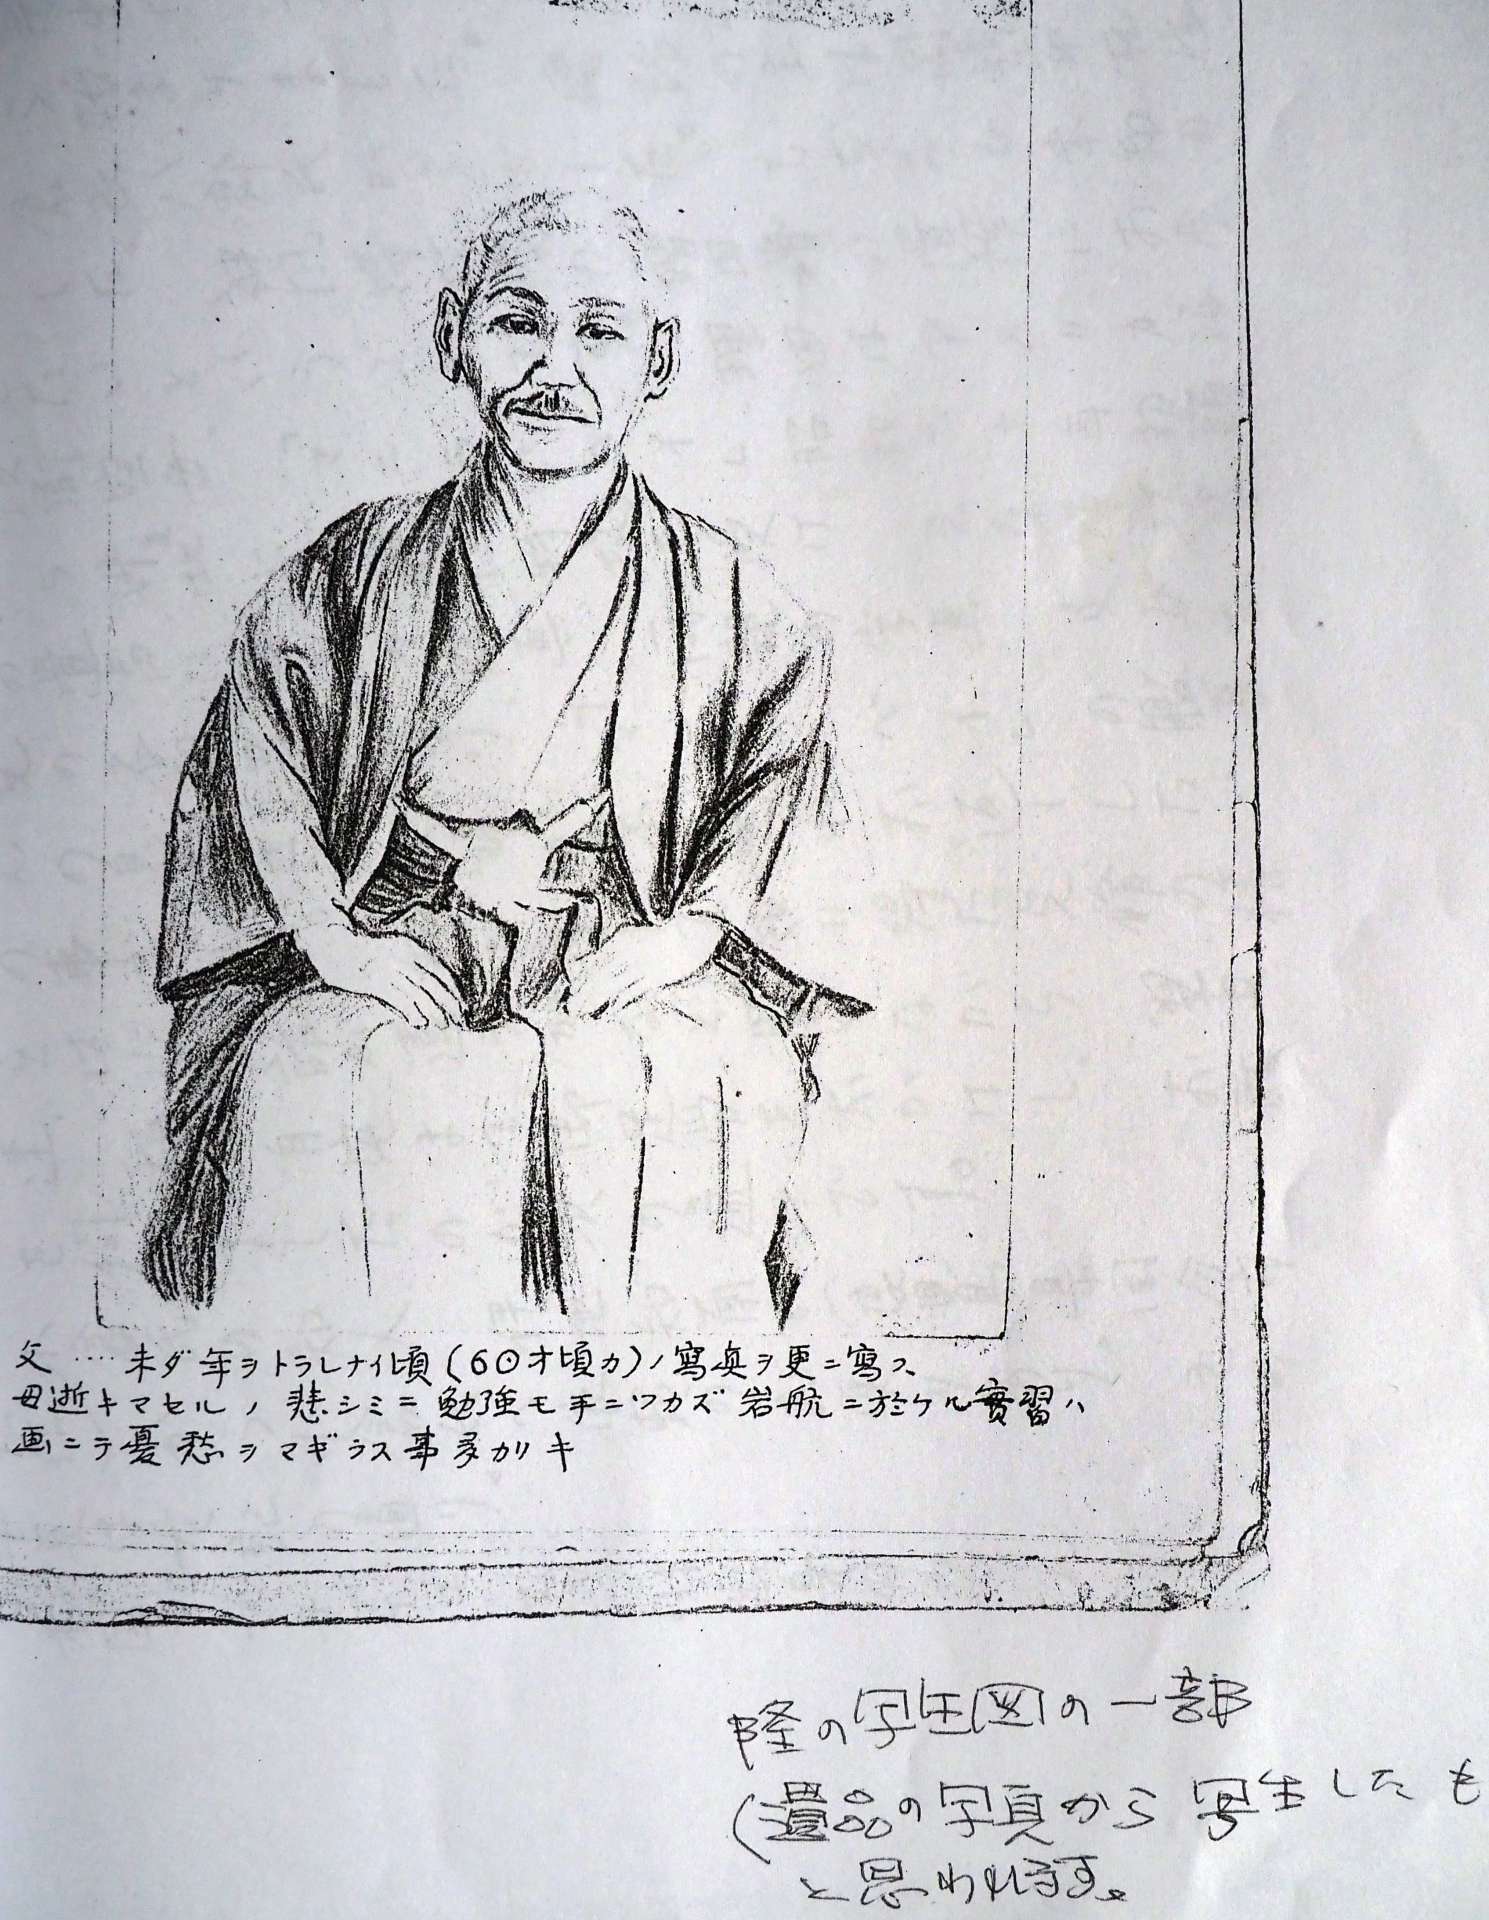 父 ‥‥ 未ダ年ヲトラレナイ頃(60才頃カ)ノ寫眞ヲ更ニ寫ス
母逝キマセルノ悲シミニ勉強モ手ニツカズ岩航ニ於ケル實習ハ
画ニテ憂愁ヲマギラス事多カリキ
隆の写生図の一部
(遺品の写真から写生したも
と思われます。